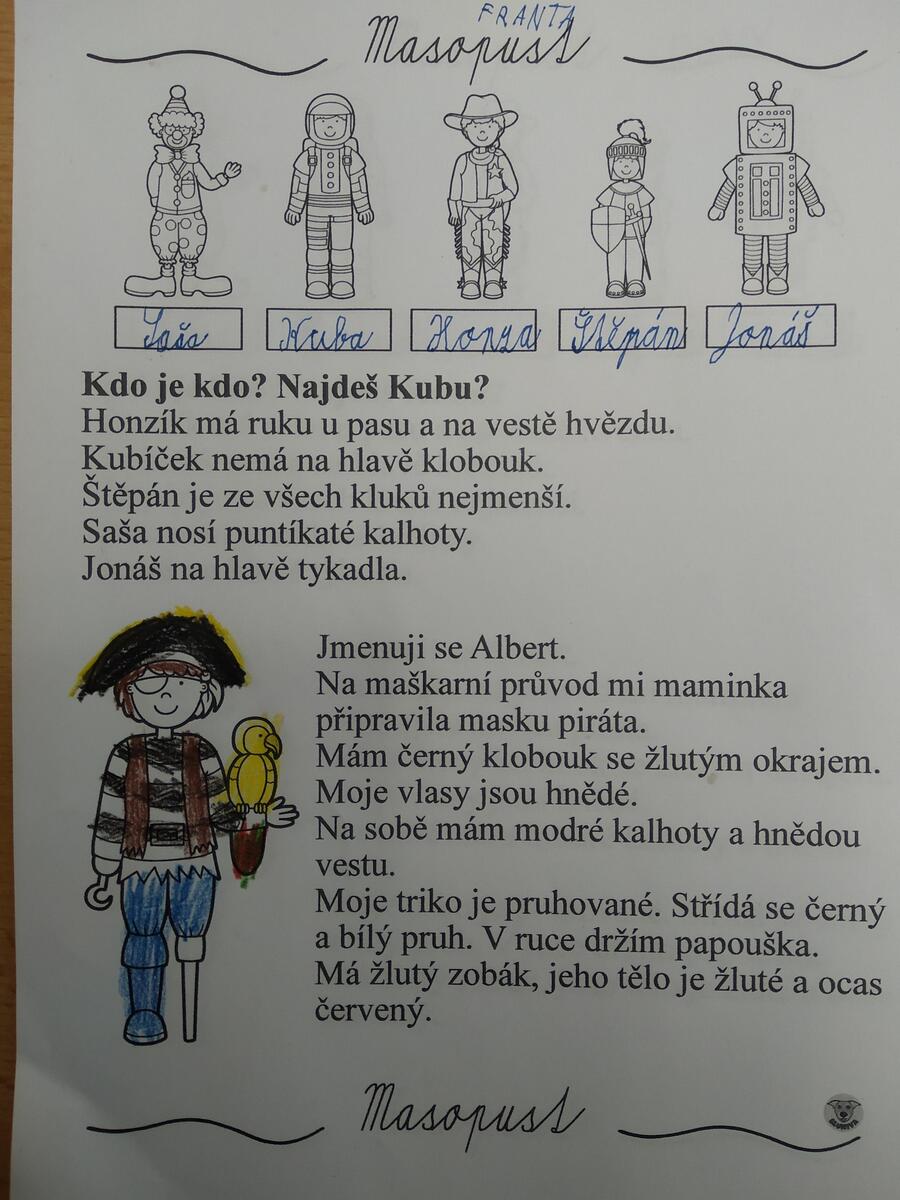 FRANTA
Masopust
Saša Kuba Honza Štěpán Jonáš
Kdo je kdo? Najdeš Kubu?
Honzík má ruku u pasu a na vestě hvězdu.
Kubíček nemá na hlavě klobouk.
Štěpán je ze všech kluků nejmenší.
Saša nosí puntíkaté kalhoty.
Jonáš na hlavě tykadla.
Jmenuji se Albert.
Na maškarní průvod mi maminka
připravila masku piráta.
Mám černý klobouk se žlutým okrajem.
Moje vlasy jsou hnědé.
Na sobě mám modré kalhoty a hnědou
vestu.
Moje triko je pruhované. Střídá se černý
a bílý pruh. V ruce držím papouška.
Má žlutý zobák, jeho tělo je žluté a ocas
červený.
Masopust